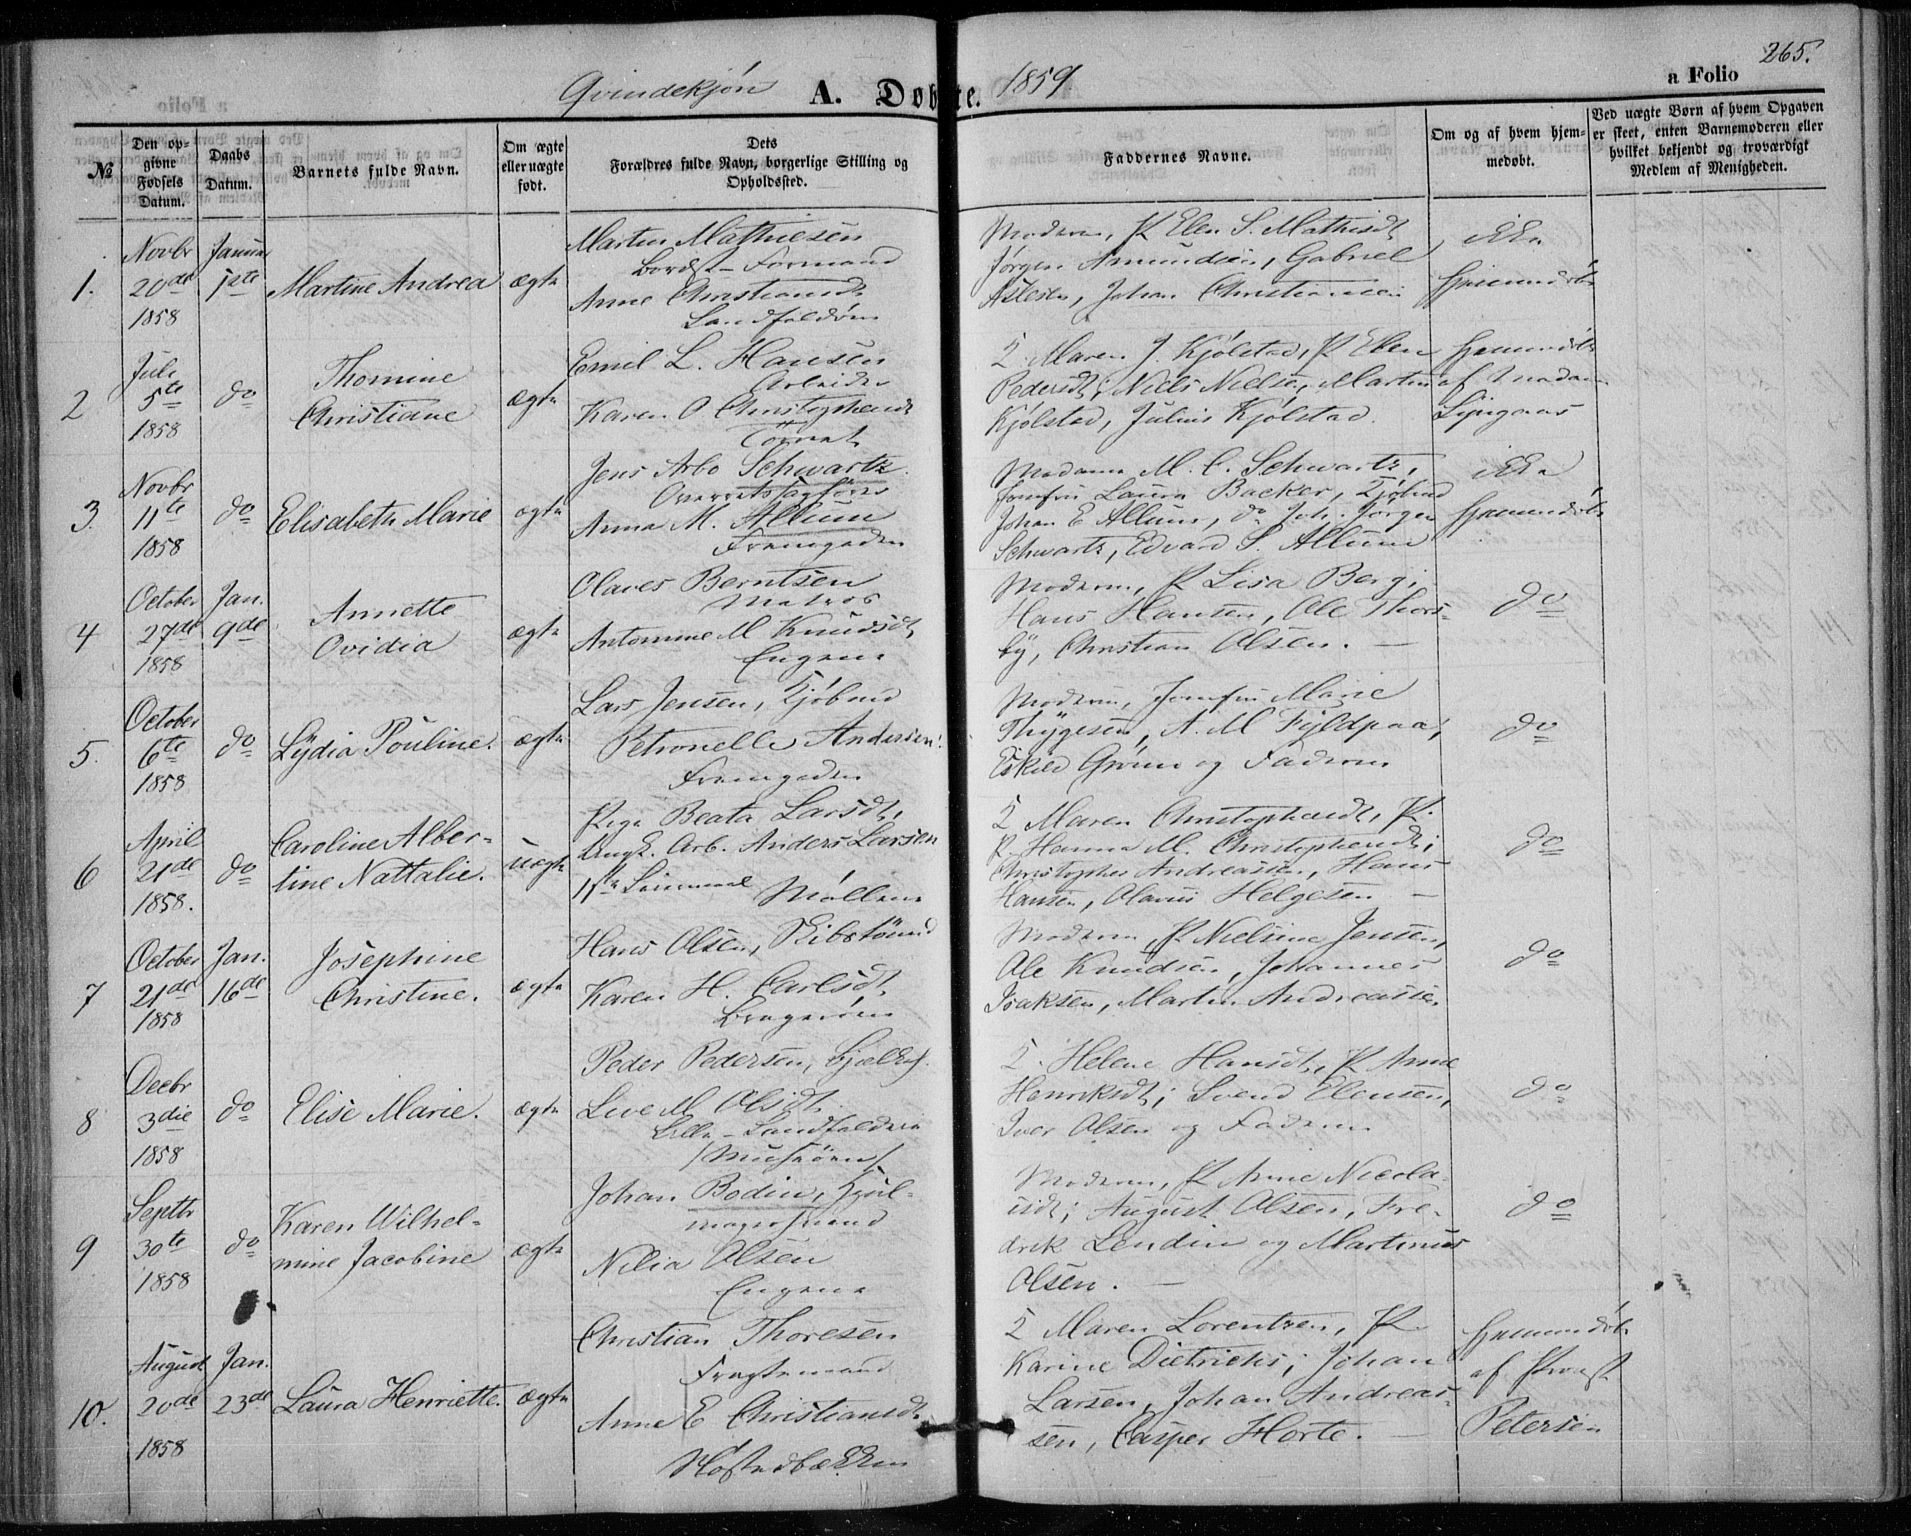 Qvindekjøn A. Døbte. 1859. a Folio 265.
№
Den opgivne Fødsels Datum.
Daabs Datum.
Barnets fulde Navn.
Om ægte eller uægte født.
Dets Forældres fulde Navn, borgerlige Stilling og Opholdssted.
Faddernes Navne.
Om og af hvem hjemmedøbt.
Ved uægte Børn af hvem Opgaven er skeet, enten Barnemoderen eller hvilket bekjendt og troværdigt Medlem af Menigheden.
1.
Novbr
20de
1858
Januar
1ste
Martine Andrea
ægte
Martin Mathiesen
Bordst-Formand
Anne Christiansdt
Landfaldøen
Moderen, P Elen S. Mathisdt
Jørgen Amundsen, Gabriel
Aslesen, Johan Christiansen
ikke
Hjemmedøbt
2
Juli
5te
1858
do
Thomine
Christiane
ægte
Emil L. Hansen
Arbeider
Karen O Christophersdt
Tørnet
K Maren J. Kjølstad, P Elen
Pedersdt; Niels Nielsen, Martin
Kjølstad, Julius Kjølstad.
Hjemmedøbt
af Madam
Lyngaas
3.
Novbr
11te
1858
do
Elisabeth Marie
ægte
Jens Arbo Schwartz.
Overretssagfører
Anna M. Allum
Fremgaden
Madame M. C. Schwartz,
Jomfru Laura Backer, Kjøbmd
Johan E Allum, do Joh. Jørgen
Schwartz, Edvard S. Allum
ikke
Hjemmedøbt
4
October
27de
1858
Jan.
9de
Annette
Ovidia
ægte
Olaves Berntsen
Matros
Antomine M Knudsdt
Engene
Moderen, P Lisa Berg;
Hans Hansen, Ole Thors-
by, Christian Olsen. —
do
5.
October
6te
1858
do
Lydia Pouline.
ægte
Lars Jensen, Kjøbmd
Petronelle Andersen.
Fremgaden
Moderen, Jomfru Marie
Thygesen, A. M Fyldpaa,
Eskild Grønn og Faderen
do
6
April
21de
1858.
do
Caroline Alber-
tine Nattalie.
uægte
Pige Beata Larsdt,
Ungk. Arb. Anders Larsen
1ste Leiermaal Møllene
K Maren Christophersdt, P.
P. Hanna M. Christophersdt;
Christopher Andreassen, Hans
Hansen, Olavus Helgesen —
do
7
October
21de
1858
Jan.
16de
Josephine
Christine.
ægte
Hans Olsen, Skibstømmd
Karen H. Carlsdt,
Bragerøen
Moderen, P Nielsine Jensen,
Ole Knudsen, Johannes
Isaksen, Martin Andreassen
do
8
Decbr
3die
1858
do
Elise Marie.
ægte
Peder Pedersen,
Live M Olsdt.
Lille-Landfaldøen
K. Helene Hansdt, P Anne
Henriksdt; Svend Elensen,
Iver Olsen og Faderen
do
9
Septbr
30te
1858
do
Karen Wilhel-
mine Jacobine
ægte
Johan Bodin, Hjul-
magersvend
Nilia Olsen
Engene
Moderen, P Anne Nicola-
isdt; August Olsen, Fre-
drik Lendin og Martinus
Olsen. —
do
10.
August
20de
1858
Jan.
23de
Laura Henriette.
ægte
Christian Thoresen
Fragtemand
Anne E Christiansdt.
Høstedbækken
K Maren Lorentzen, P.
Karine Dietrichs; Johan
Larsen, Johan Andreas-
sen, Casper Horte. —
Hjemmedøbt
af Provst
Petersen